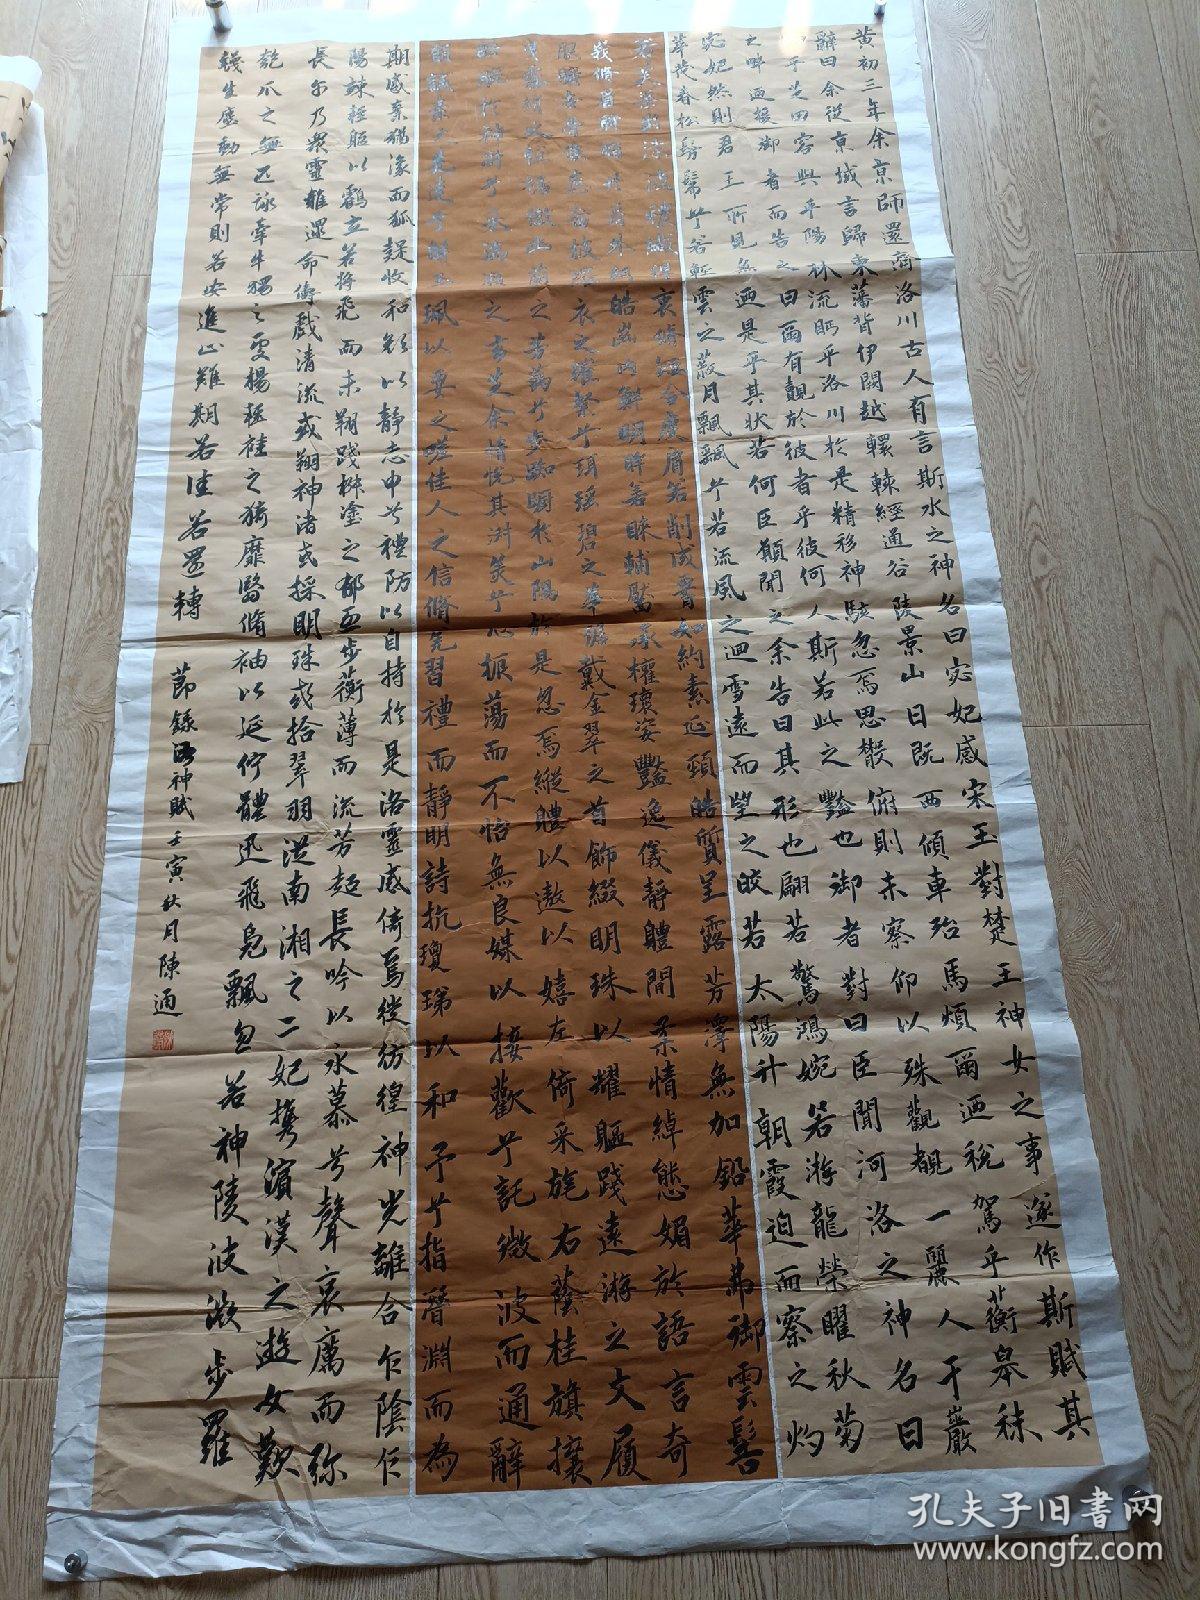 黄初三年余京師還濟洛川古人有言斯水之神名曰宓妃感宋玉對楚王神女之事遂作斯賦其
辭曰余從京域言歸東藩背伊闕越轘轅經通谷陵景山日既西傾車殆馬煩爾迺税駕乎蘅皋秣
乎芝田容與乎陽林流眄乎洛川於是精移神駭忽焉思散俯則未察仰以殊觀覩一麗人于巖
之畔迺援御者而告之曰爾有覿於彼者乎彼何人斯若此之豔也御者對曰臣聞河洛之神名曰
宓妃然則君王所見無迺是乎其状若何臣願聞之余告曰其形也翩若驚鴻婉若游龍榮曜秋菊
華茂春松髣髴兮若輕雲之蔽月飄飄兮若流風之迴雪遠而望之皎若太陽升朝霞迫而察之灼
若芙蕖出淥波穠纖得衷脩短合度肩若削成署如約素延頸皓質呈露芳澤無加鉛華弗御雲髻
峩脩眉聯娟丹脣外朗皓齒内鮮明眸善睞輔靨承權瓌姿豔逸儀静體閒柔情綽態媚於語言奇
服曠世骨像應圖披羅衣之璀粲兮珥瑶碧之華琚戴金翠之首飾綴明珠以耀軀踐遠游之文履
曳霧綃之輕裾微幽蘭之芳藹兮步踟躕於山隅於是忽焉縱體以遨以嬉左倚采旄右蔭桂旗攘
皓腕於神滸兮采湍瀨之玄芝余情悦其淑美兮心振蕩而不怡無良媒以接歡兮託微波而通辭
願誠素之先達兮解玉珮以要之嗟佳人之信脩羌習禮而静明詩抗瓊珶以和予兮指潛淵而為
期感棄猶豫而狐疑收和顔以静志申兮禮防以自持於是洛靈感倚焉徙彷徨神光離合乍陰乍
陽竦輕軀以鶴立若將飛而未翔踐椒塗之郁步蘅薄而流芳超長吟以永慕兮聲哀厲而弥
長尔乃衆靈雜遝命儔戲清流或翔神渚或採明珠或拾翠羽從南湘之二妃携濱漢之遊女歎
匏瓜之無匹詠牽牛獨之處揚輕袿之猗靡翳脩袖以延佇體迅飛鳧飄忽若神陵波微步羅
襪生塵動無常則若安進止難期若往若還轉
節録洛神賦壬寅秋月陳逎
孔夫子旧書网
www.kongfz.com